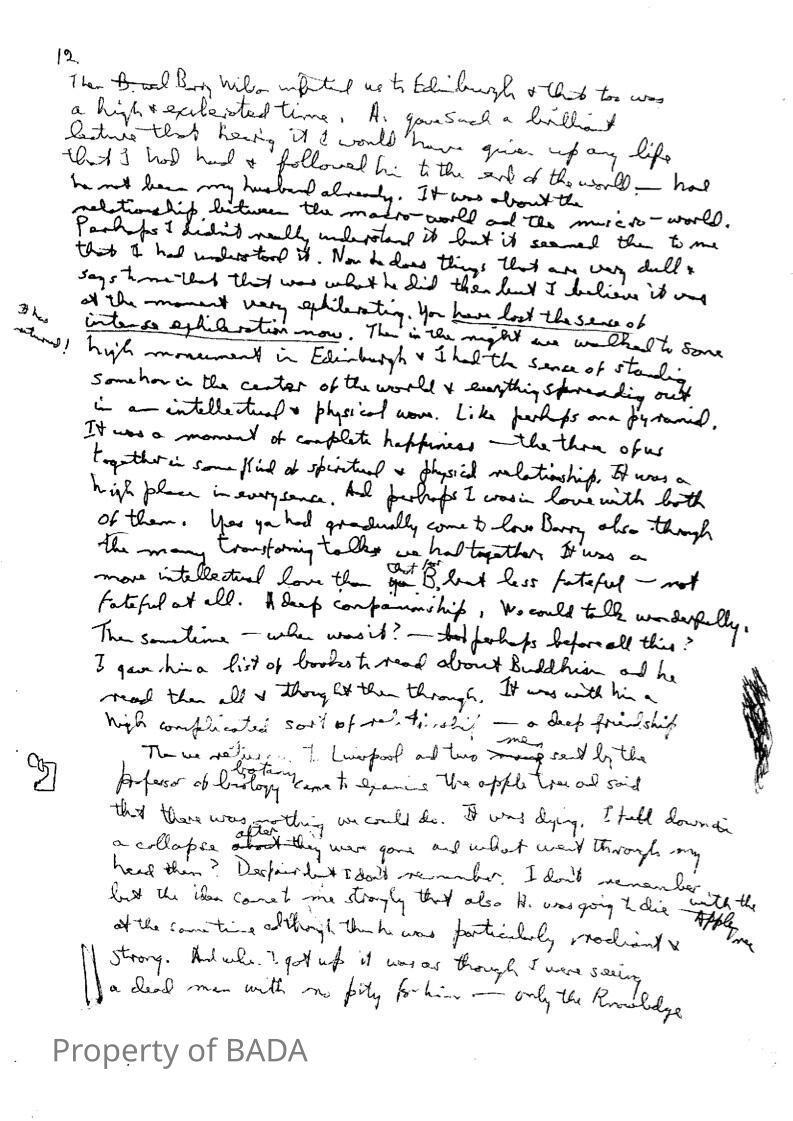 12.
Then B. and Barry Wilson invited us to Edinburgh & that too was
a high & exilerated time. A. gave such a brilliant
lecture that hearing it I would have given up any life
that I had had & followed him to the end of the world — had
he not been my husband already. It was about the
relationship between the macro-world and the micro-world.
Perhaps I didn't really understand it but it seemed then to me
that I had understood it. Now he does things that are very dull &
says to me that that was what he did then but I believe it was
at the moment very exhilerating. You have lost the sense of
It has
returned!
intense exhileration now. Then in the night we walked to some
high monument in Edinburgh & I had the sense of standing
somehow in the center of the world & everything spreading out
in an intellectual & physical wave. Like perhaps on a pyramid.
It was a moment of complete happiness — the three of us
together in some kind of spiritual & physical relationship. It was a
high place in every sense. And perhaps I was in love with both
of them. Yes I had gradually come to love Barry also through
the many transforming talks we had together. It was a
more intellectual love than that for B, but less fateful — not
fateful at all. A deep companionship, We could talk wonderfully.
Then sometime — when was it? — perhaps before all this?
I gave him a list of books to read about Buddhism and he
read them all & thought them through. It was with him a
high complicated sort of relationship — a deep friendship
Then we return to Liverpool and two men sent by the
professor of botany came to examine the apple tree and said
that there was nothing we could do. It was dying. I fell down in
a collapse after they were gone and what went through my
head then? Despair but I don't remember. I don't remember
but the idea came to me strongly that also A. was going to die with the
Apple tree
at the same time although then he was particularly radiant &
strong. And when I got up it was as though I were seeing
a dead man with no pity for him — only the knowledge
Property of BADA